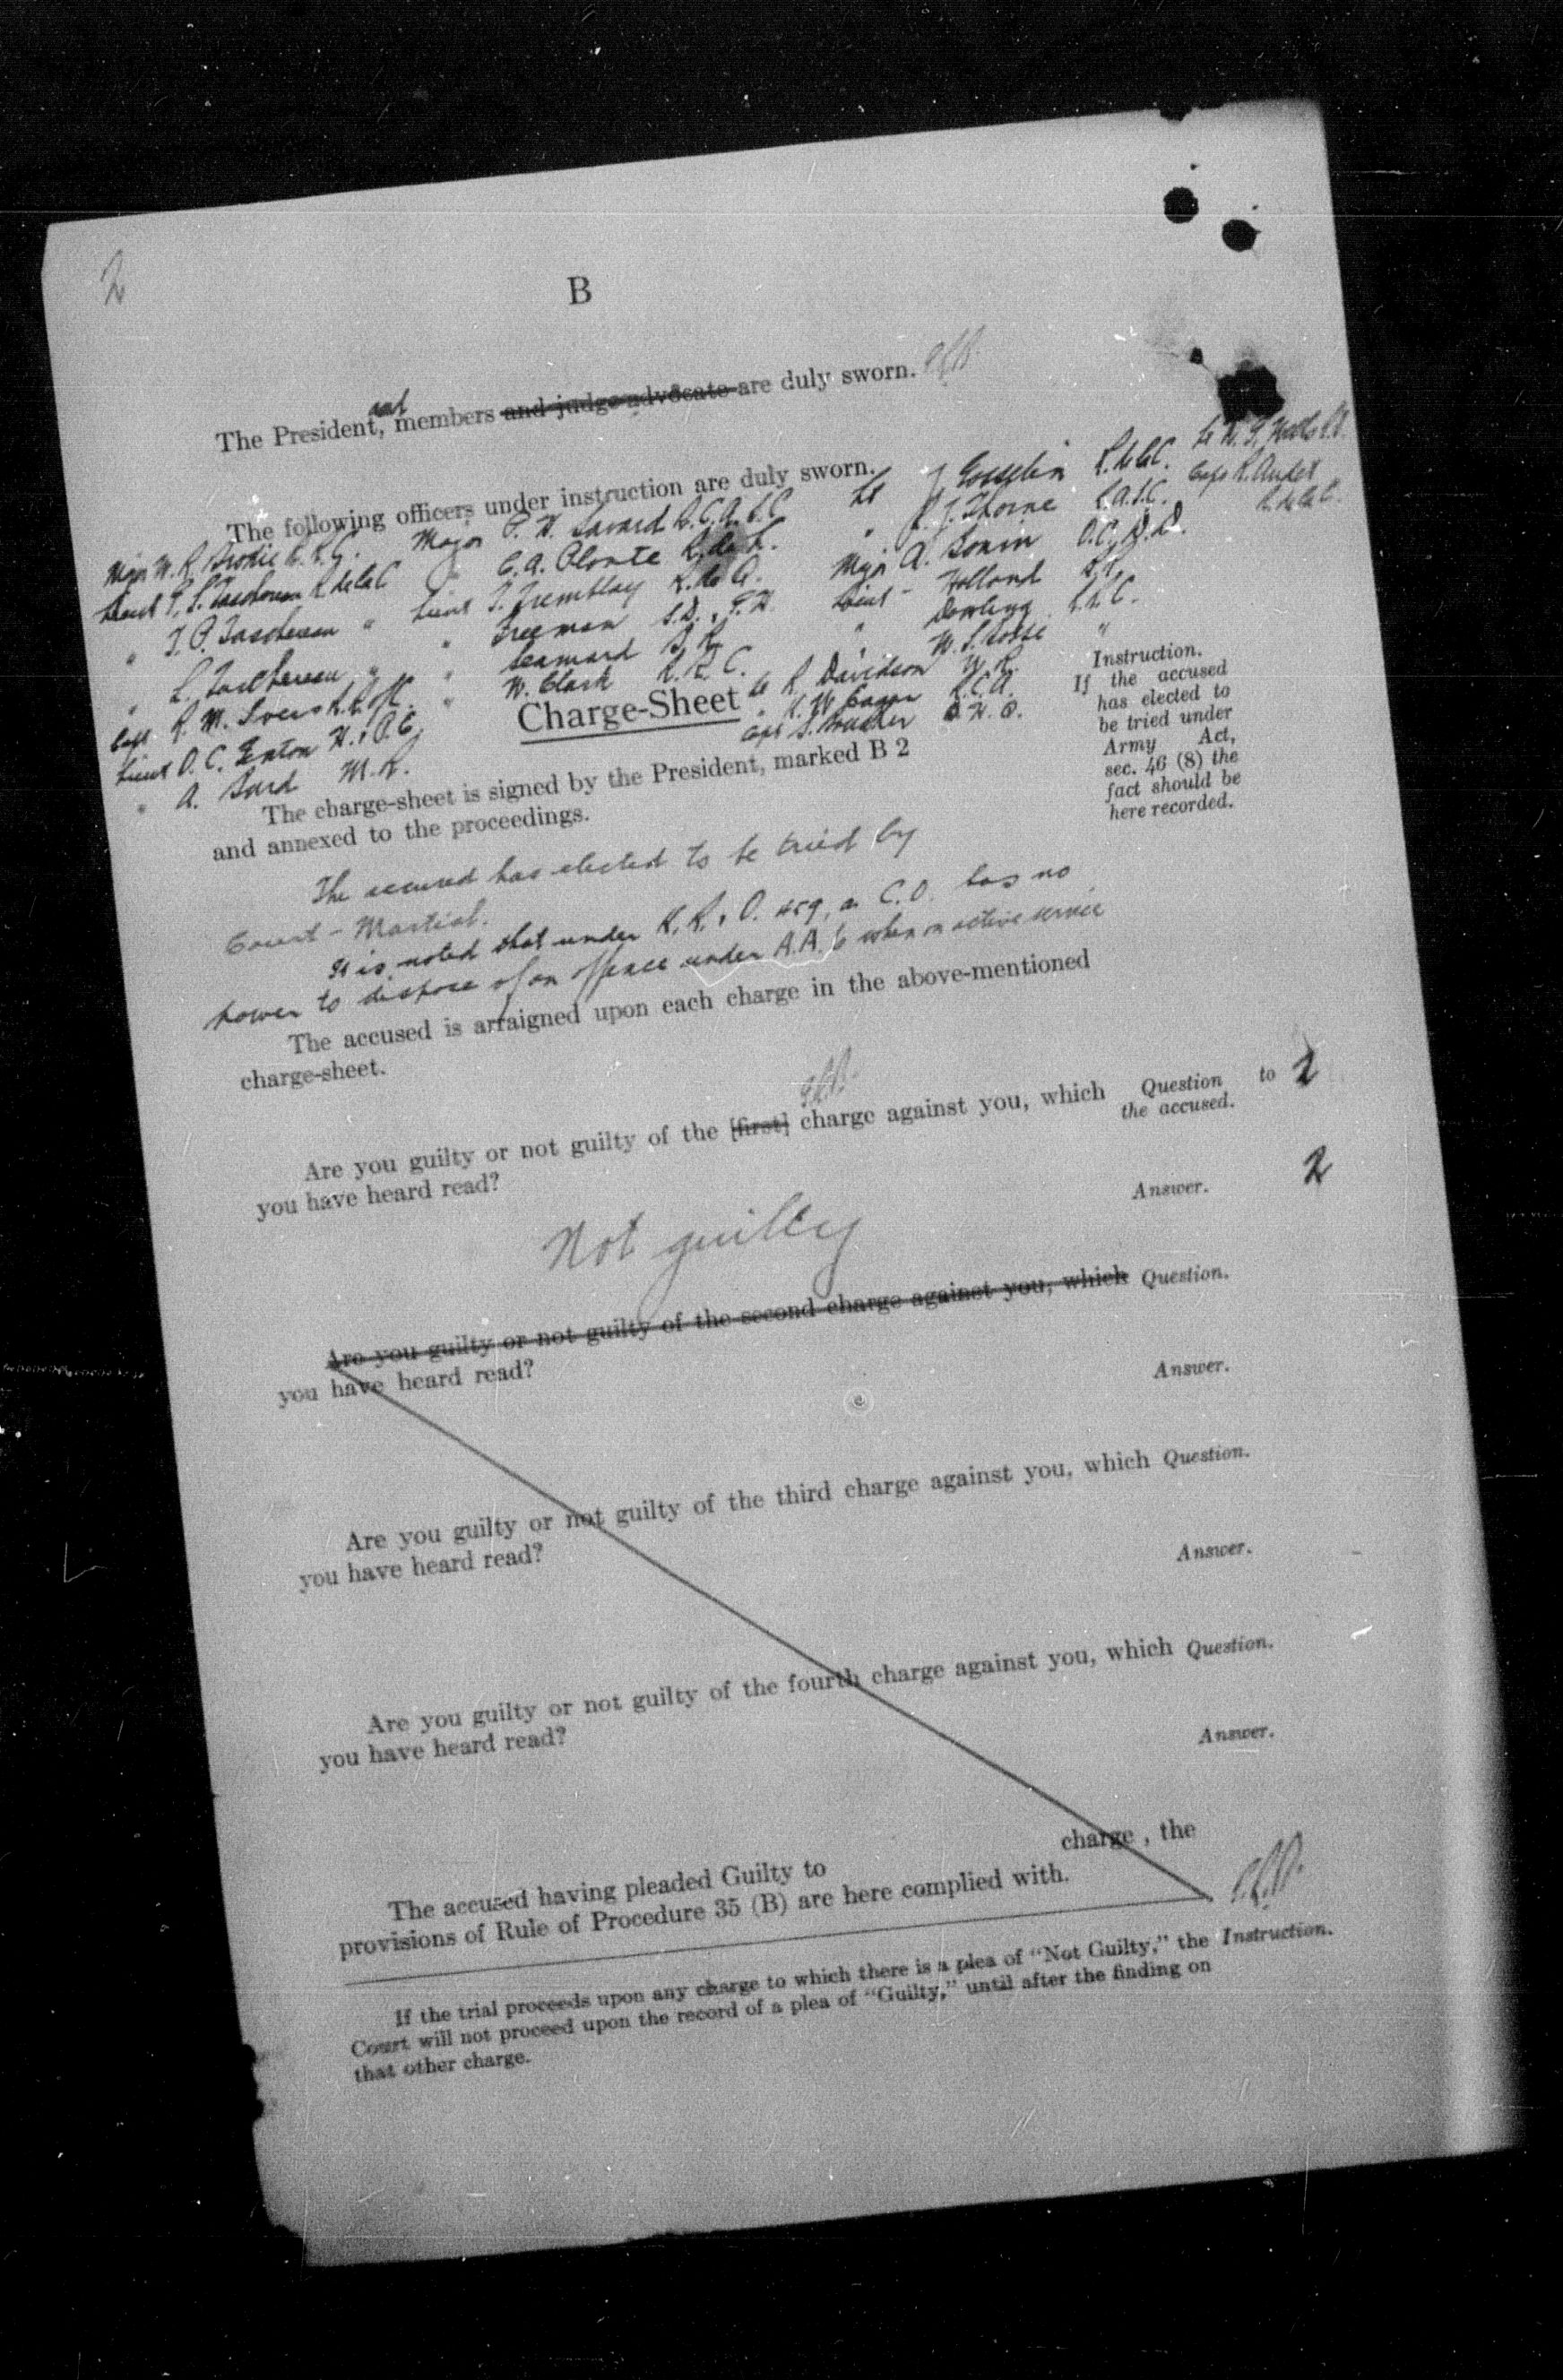 2
B
The President, and members and judge advocate are duly sworn.
The following officers under instruction are duly sworn.
Major W. R. Brodie
Major P. H. Savard R.C.A.S.C
Lt J Gosselin R. de la C.
Capt R. Audet
Lieut
C. A. Plante
" J. Thorne
" Lieut J. Tremblay
Major A. Bonin
" Freeman
Lieut - Holland
" Seaward
" Dowling
Capt R. M.
" W. Clark
Lieut O. C.
Lt R. Davidson
" A. Baird M.R.
Capt S.
Charge-Sheet
The charge-sheet is signed by the President, marked B 2
and annexed to the proceedings.
Instruction.
If the accused
has elected to
be tried under
Army Act,
sec. 46 (8) the
fact should be
here recorded.
The accused has elected to be tried by
Court - Martial.
It is noted that under K. R. & O. 459, a C.O. has no
power to dispose of an offence under A.A. 6 when on active service
The accused is arraigned upon each charge in the above-mentioned
charge-sheet.
Are you guilty or not guilty of the [first] charge against you, which
you have heard read?
Question to
the accused.
2
Answer.
2
Not guilty
Are you guilty or not guilty of the second charge against you, which Question.
you have heard read?
Answer.
Are you guilty or not guilty of the third charge against you, which Question.
you have heard read?
Answer.
Are you guilty or not guilty of the fourth charge against you, which Question.
you have heard read?
Answer.
The accused having pleaded Guilty to charge , the
provisions of Rule of Procedure 35 (B) are here complied with.
If the trial proceeds upon any charge to which there is a plea of "Not Guilty," the Instruction.
Court will not proceed upon the record of a plea of "Guilty," until after the finding on
that other charge.